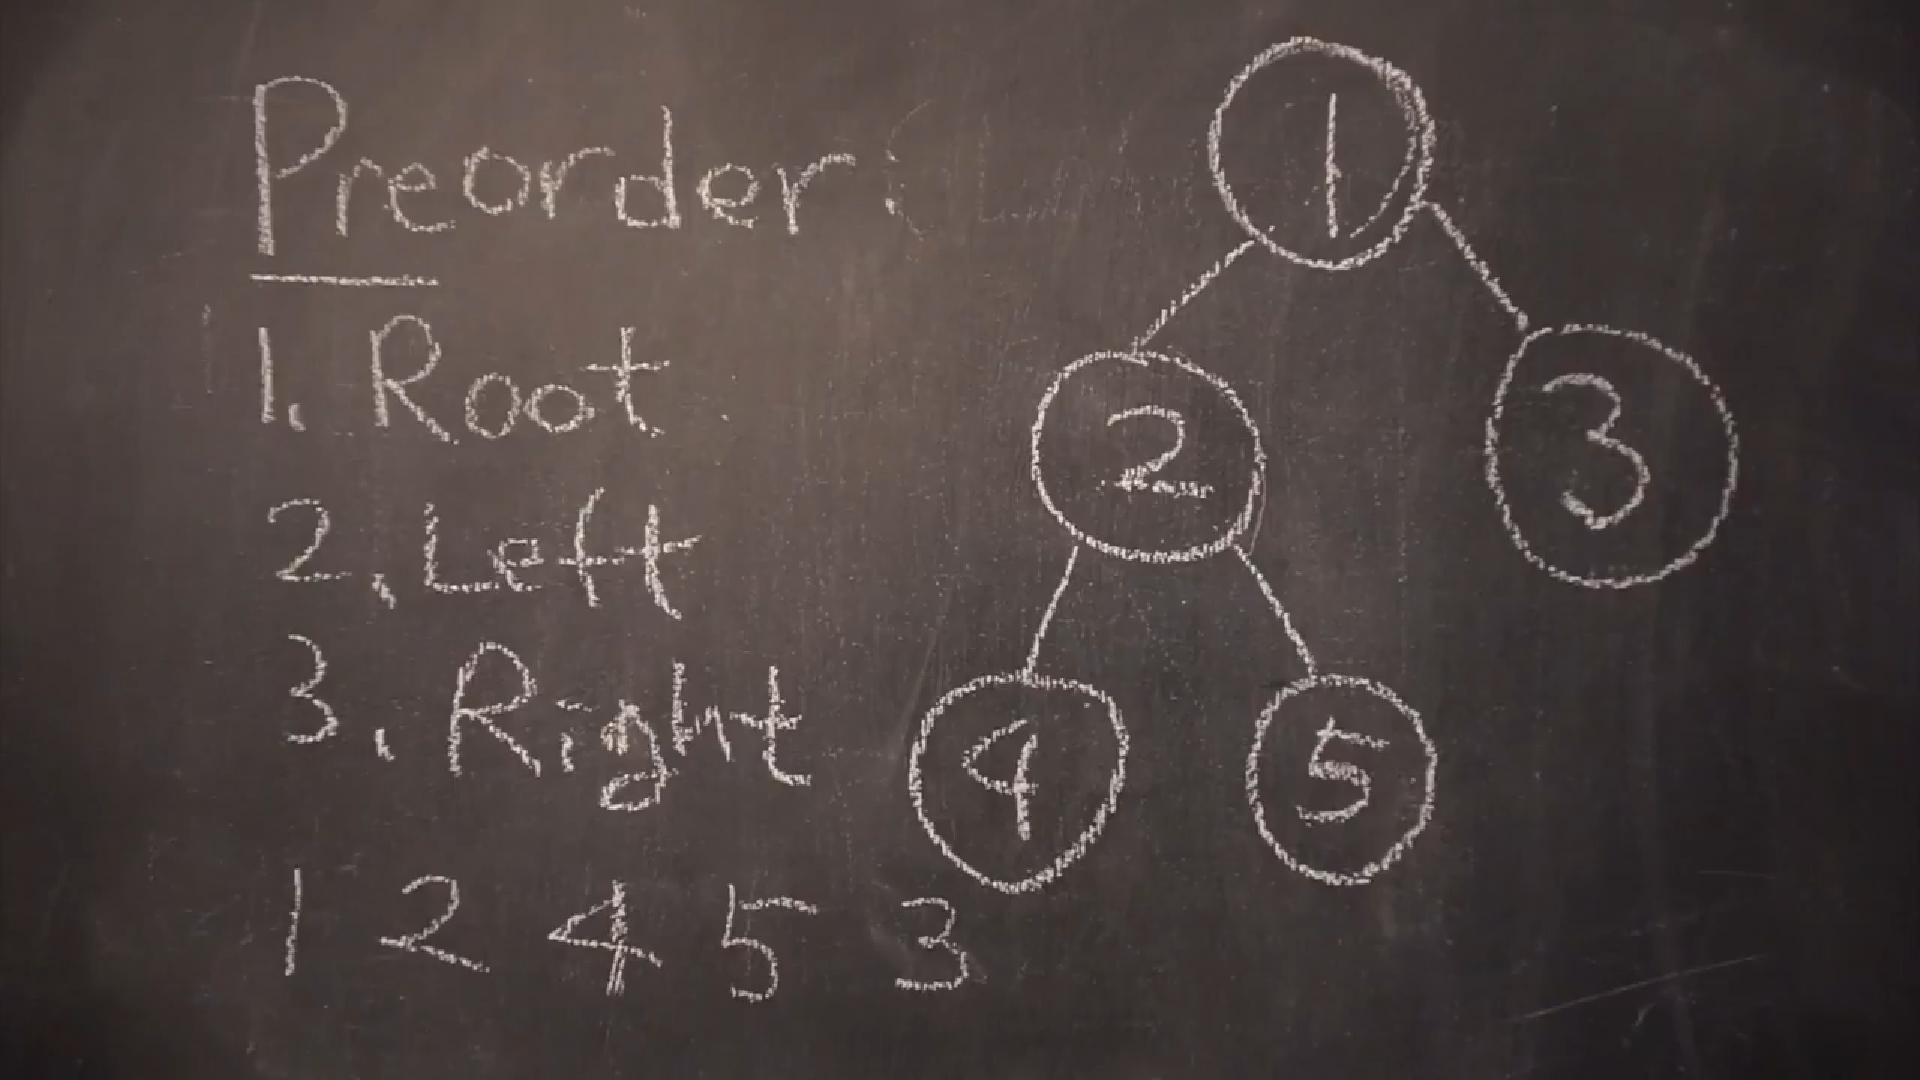 Preorder:
1. Root
2. Left
3. Right
1 2 4 5 3
1
2
3
4
5